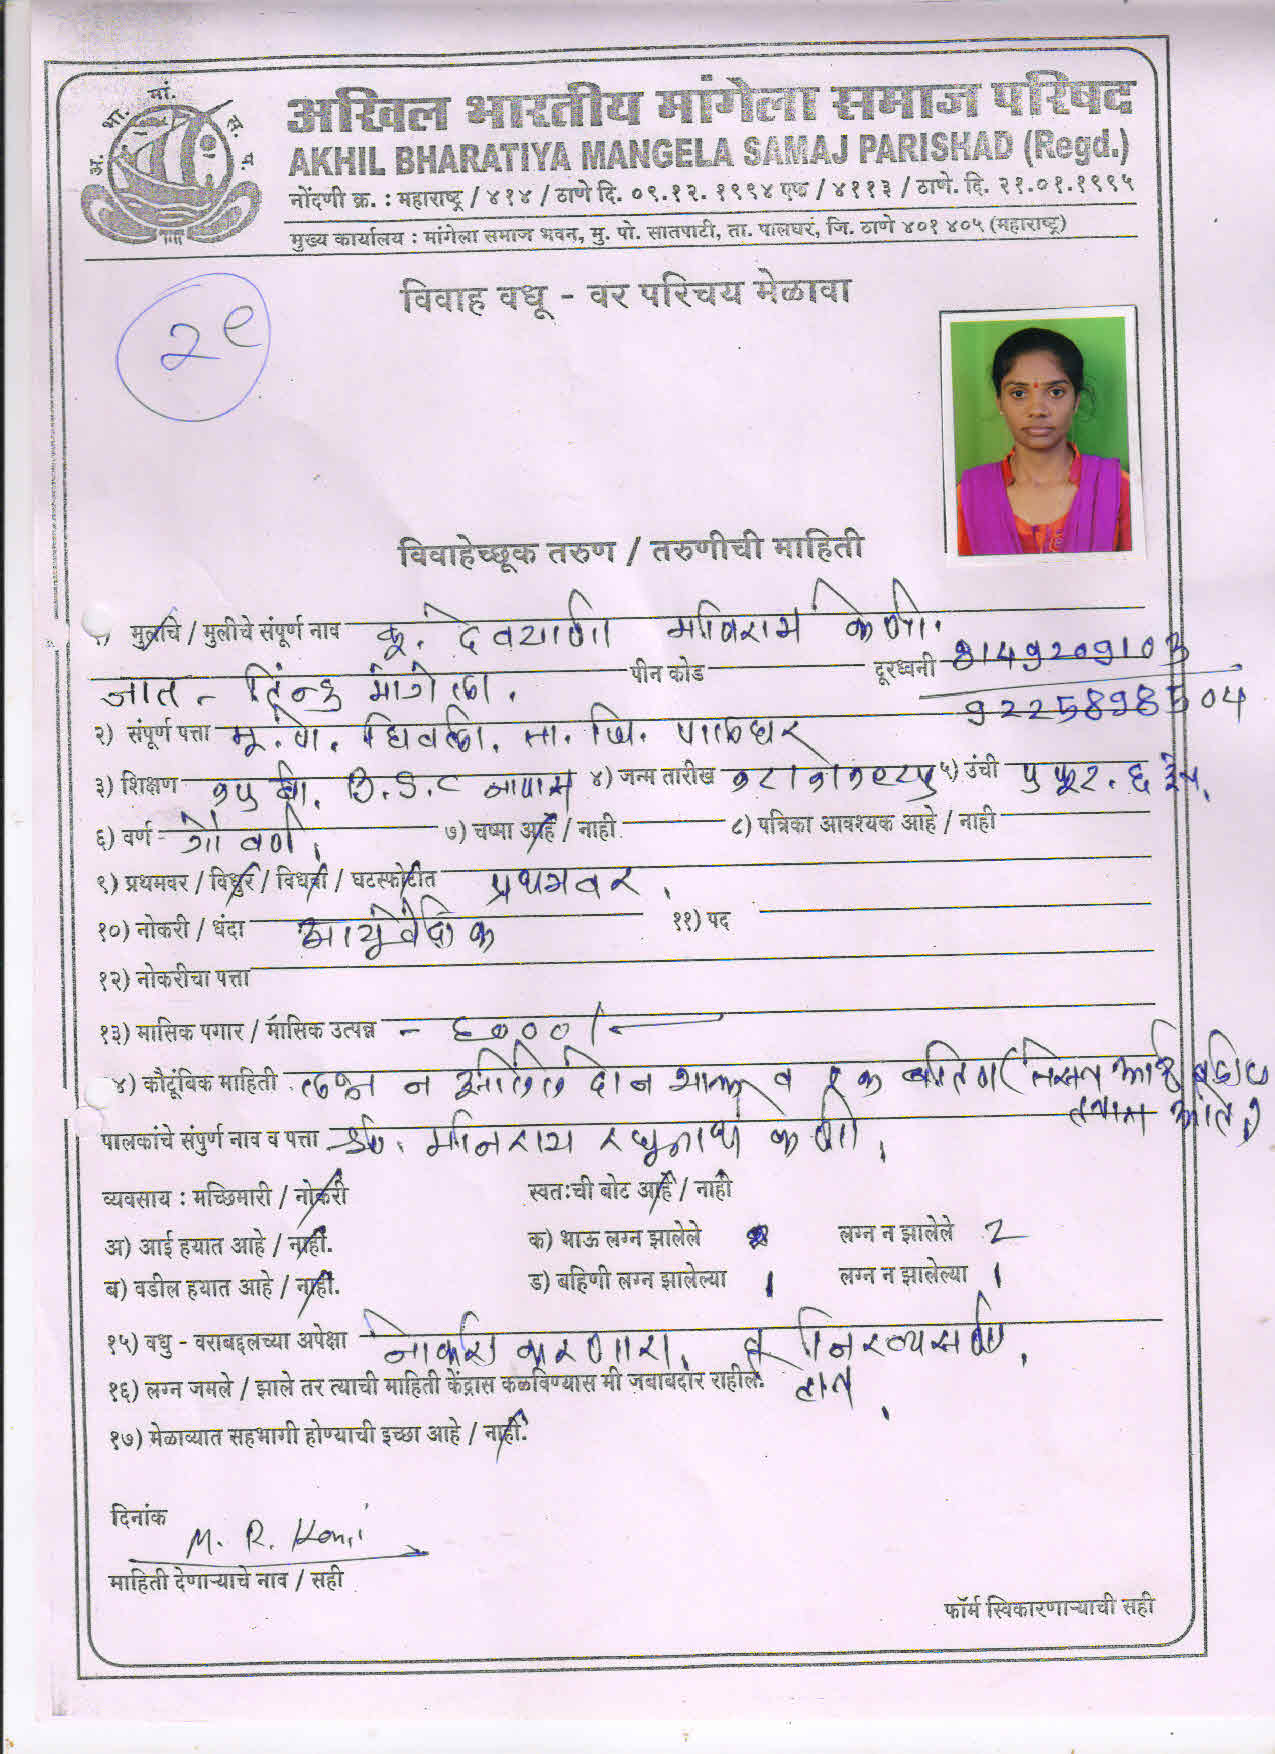 अ. भा. मां. स. प.
अखिल भारतीय मांगेला समाज परिषद
AKHIL BHARATIYA MANGELA SAMAJ PARISHAD (Regd.)
नोंदणी क्र. : महाराष्ट्र / ४१४ / ठाणे दि. ०९.१२. १९९४ एफ / ४११३ / ठाणे. दि. २१.०१.१९९५
मुख्य कार्यालय : मांगेला समाज भवन, मु. पो. सातपाटी, ता. पालघर, जि. ठाणे ४०१ ४०५ (महाराष्ट्र)
विवाह वधू - वर परिचय मेळावा
२९
विवाहेच्छूक तरुण / तरुणीची माहिती
मुलाचे / मुलीचे संपूर्ण नाव कू. देवयाणी मनिराम केणी.
जात - हिन्दु मांगेला. पीन कोड दूरध्वनी 8149209103
२) संपूर्ण पत्ता मू. पो. घिवली. ता. जि. पालघर
३) शिक्षण १५ वी. नापास ४) जन्म तारीख ५) उंची ५ फूट. ६ इंच.
६) वर्ण गोवर्ण. ७) चष्मा आहे / नाही ८) पत्रिका आवश्यक आहे / नाही
९) प्रथमवर / विधुर / विधवा / घटस्फोटीत प्रथमवर.
१०) नोकरी / धंदा आयुर्वेदिक ११) पद
१२) नोकरीचा पत्ता
१३) मासिक पगार / मासिक उत्पन्न - ६०००/-
४) कौटूंबिक माहिती लग्न न झालेले दोन भाऊ व एक बहिण
पालकांचे संपुर्ण नाव व पत्ता श्री. मनिराम रघुनाथ केणी.
व्यवसाय : मच्छिमारी / नोकरी स्वतःची बोट आहे / नाही
अ) आई हयात आहे / नाही. क) भाऊ लग्न झालेले लग्न न झालेले 2
ब) वडील हयात आहे / नाही. ड) बहिणी लग्न झालेल्या 1 लग्न न झालेल्या 1
१५) वधु - वराबद्दलच्या अपेक्षा नोकरी करणारा. व निरव्यसनी.
१६) लग्न जमले / झाले तर त्याची माहिती केंद्रास कळविण्यास मी जबाबदार राहील.
१७) मेळाव्यात सहभागी होण्याची इच्छा आहे / नाही.
दिनांक
M. R. Keni
माहिती देणाऱ्याचे नाव / सही
फॉर्म स्विकारणाऱ्याची सही